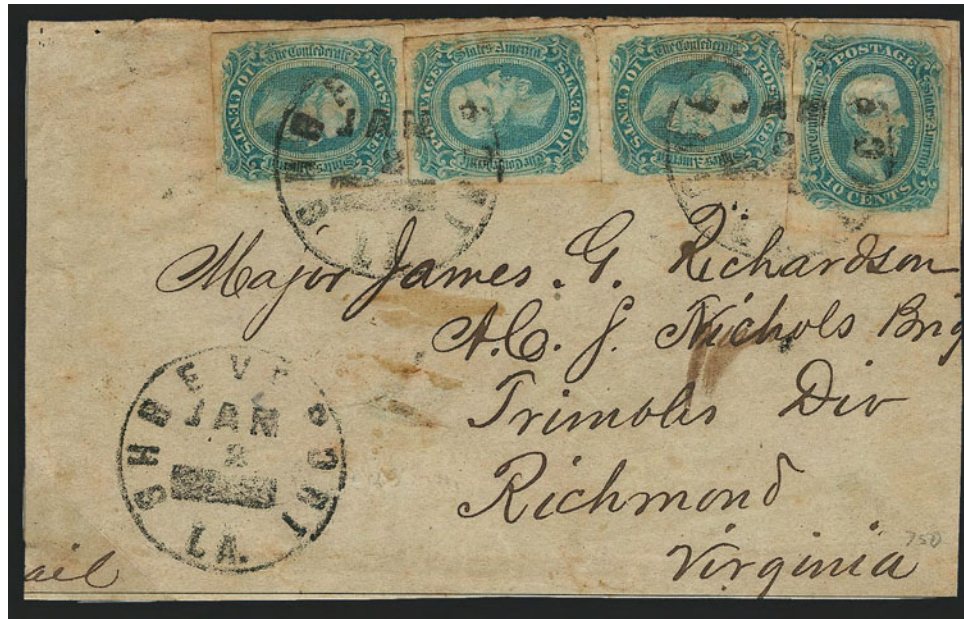 The Confederate States America POSTAGE 10 CENTS
The Confederate States America POSTAGE 10 CENTS
The Confederate States America POSTAGE 10 CENTS
The Confederate States America POSTAGE 10 CENTS
Major James G. Richardson
A.C.G. Nichols Brig
Trimbles Div
Richmond
Virginia
SHREVEPORT
JAN
2
LA.
ail
750